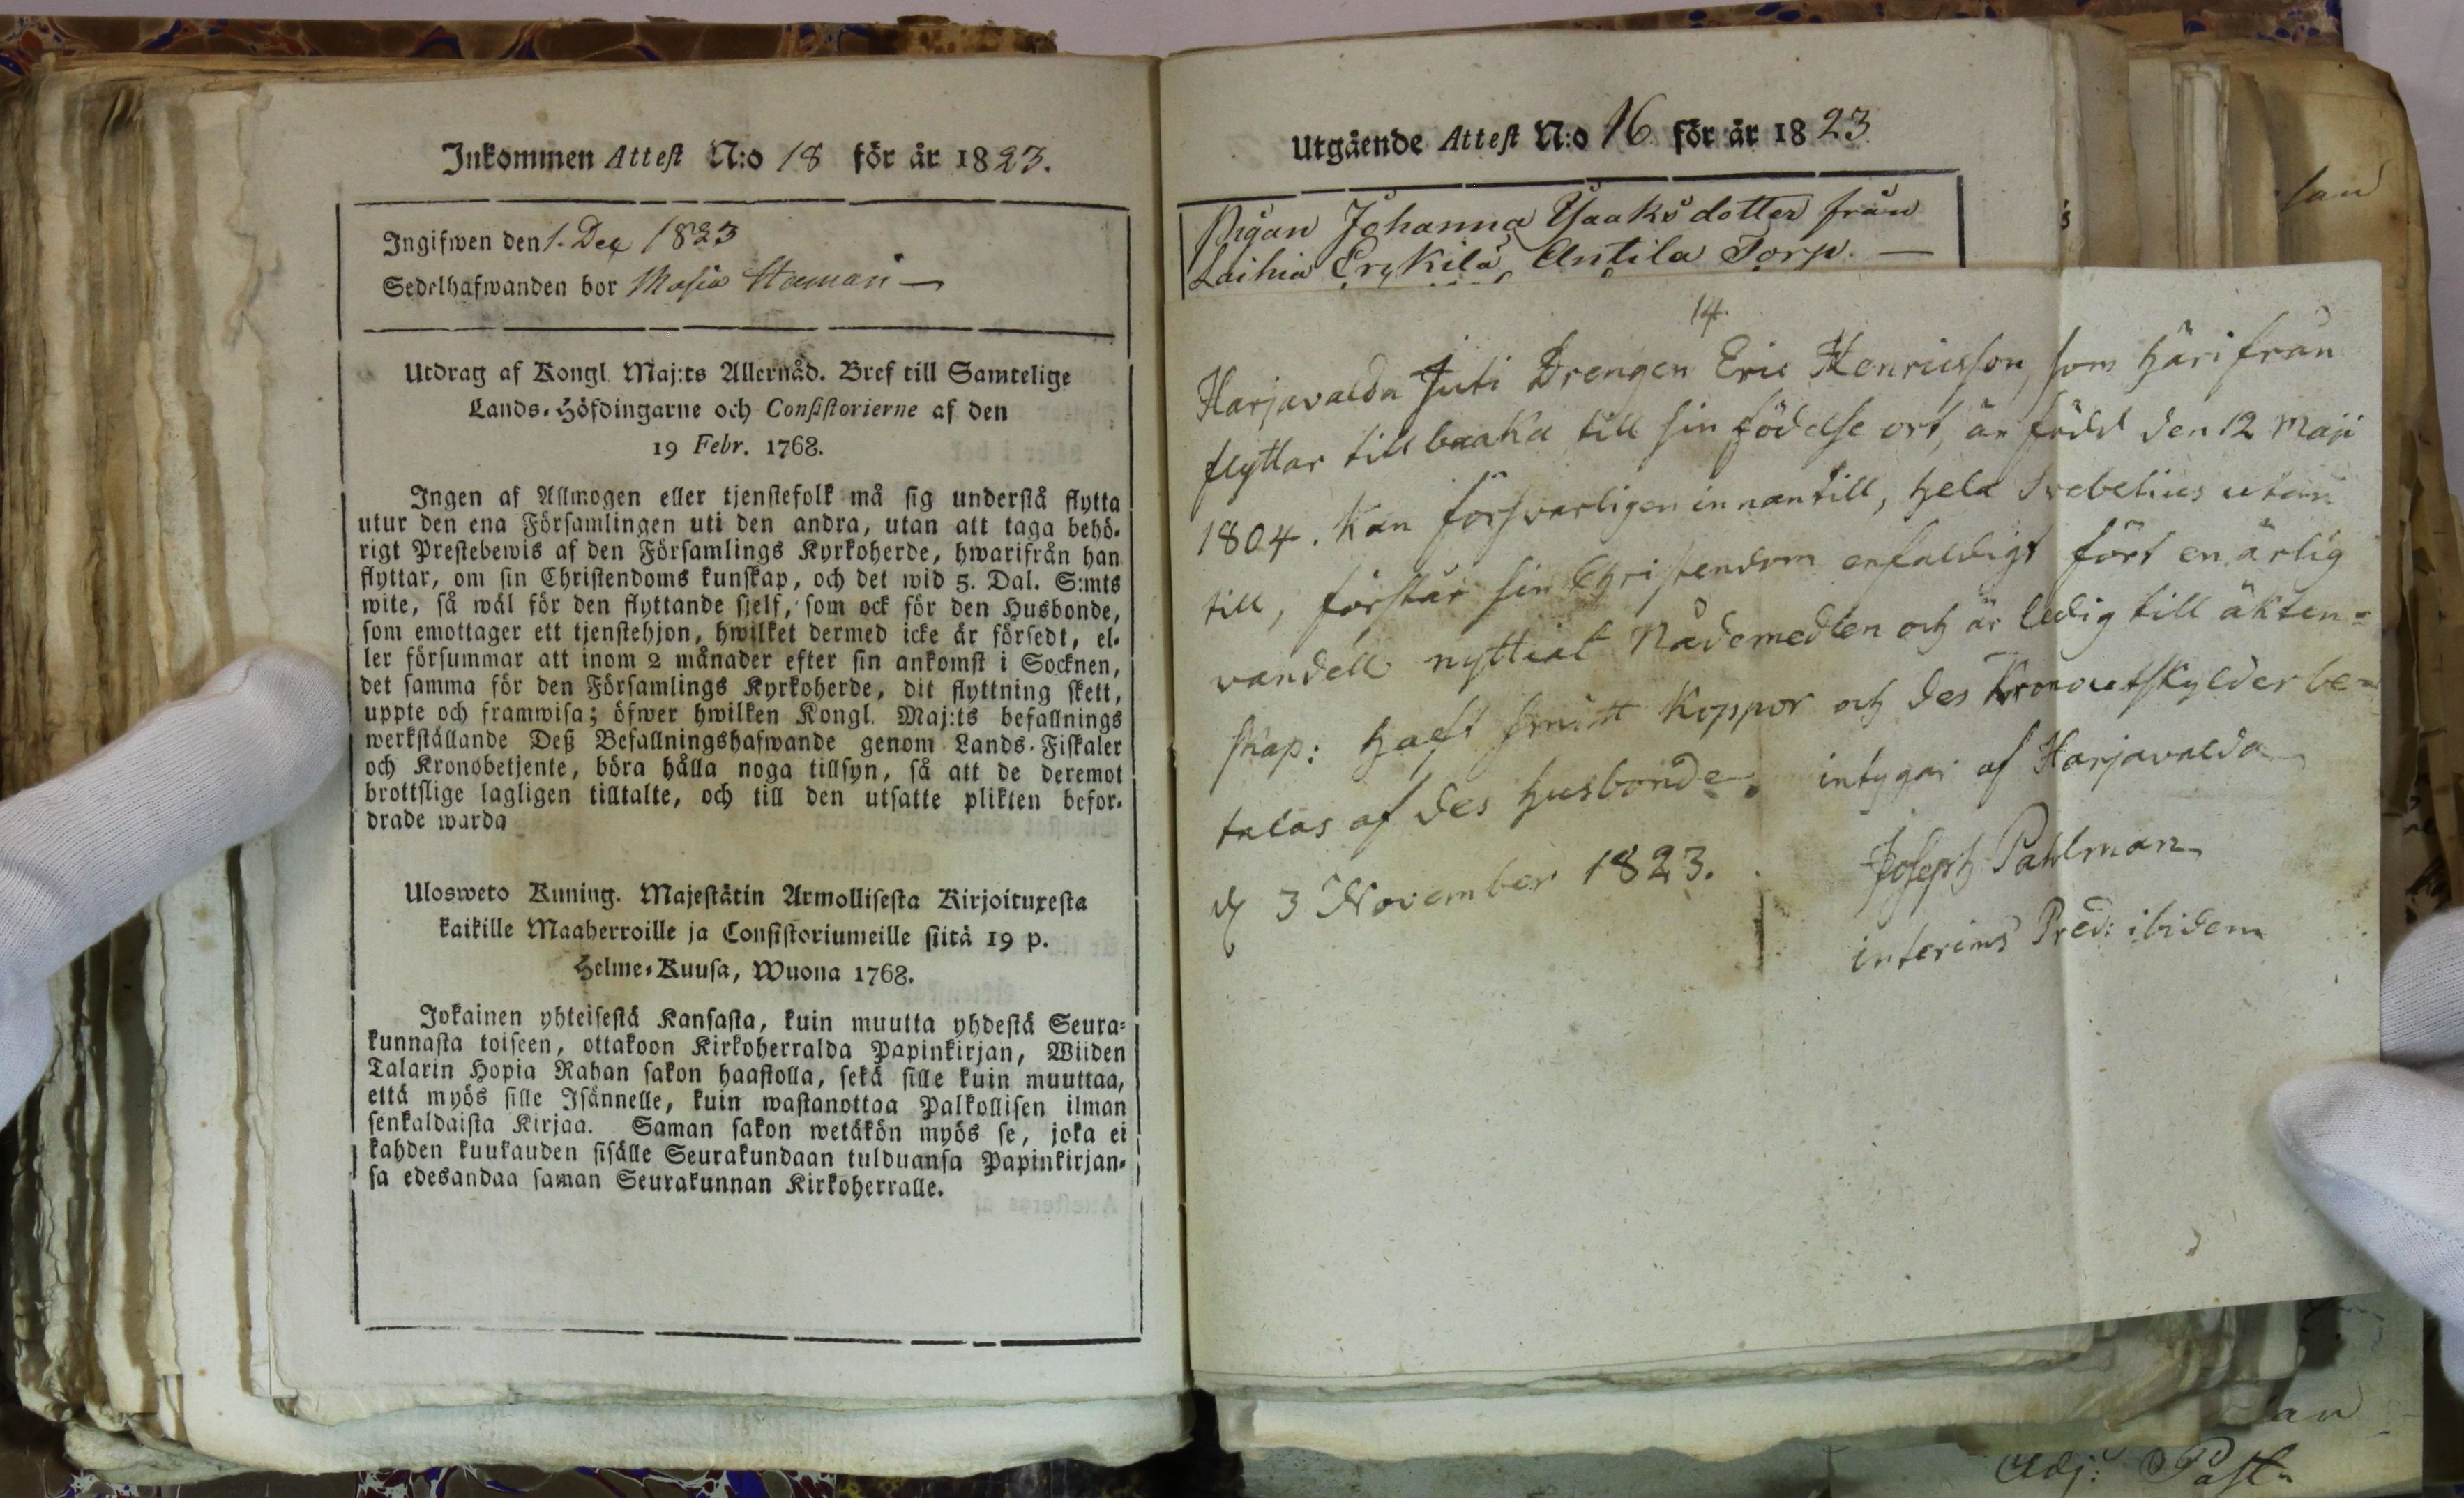 Inkommen Attest N:o 18 för år 1823.
Ingifwen den 1. Dec 1823
Sedelhafwanden bor
Utdrag af Kongl. Maj:ts Allernåd. Bref till Samtelige
Lands-Höfdingarne och Consistorierne af den
19 Febr. 1768.
Ingen af Allmogen eller tjenstefolk må sig understå flytta
utur den ena Församlingen uti den andra, utan att taga behö-
rigt Prestebewis af den Församlings Kyrkoherde, hwarifrån han
flyttar, om sin Christendoms kunskap, och det wid 5. Dal. S:mts
wite, så wäl för den flyttande sjelf, som ock för den Husbonde,
som emottager ett tjenstehjon, hwilket dermed icke är försedt, el-
ler försummar att inom 2 månader efter sin ankomst i Socknen,
det samma för den Församlings Kyrkoherde, dit flyttning skett,
uppte och framwisa; öfwer hwilken Kongl. Maj:ts befallnings
werkställande Deß Befallningshafwande genom Lands-Fiskaler
och Kronobetjente, böra hålla noga tillsyn, så att de deremot
brottslige lagligen tilltalte, och till den utsatte plikten befor-
drade warda
Ulosweto Kuning. Majestätin Armollisesta Kirjoituxesta
kaikille Maaherroille ja Consistoriumeille siitä 19 p.
Helme-Kuusa, Wuona 1768.
Jokainen yhteisestä Kansasta, kuin muutta yhdestä Seura-
kunnasta toiseen, ottakoon Kirkoherralda Papinkirjan, Wiiden
Talarin Hopia Rahan sakon haastolla, sekä sille kuin muuttaa,
että myös sille Isännelle, kuin wastanottaa Palkollisen ilman
senkaldaista Kirjaa. Saman sakon wetäkön myös se, joka ei
kahden kuukauden sisälle Seurakundaan tulduansa Papinkirjan-
sa edesandaa saman Seurakunnan Kirkoherralle.
Utgående Attest N:o 16 för år 1823
Pigan Johanna Isaaksdotter från
Laihia Erkkilä Antila Torp. —
14.
Harjavalda Juti Drengen Eric Henricsson, som härifrån
flyttar tillbaaka till sin födelse ort, är född den 12 Maji
1804. Kan försvarligen innantill, hela Svebelius utan
till, förstår sin Christendom enfaldigt fört en ärlig
vandell nyttiat Nådemedlen och är ledig till äkten=
skap: haft Koppor och des Kronoutskylder be=
talas af des husbonde, intygar af Harjavalda
d 3 November 1823.
Joseph Pahlman
interims Pred: ibidem
Adj: Past: